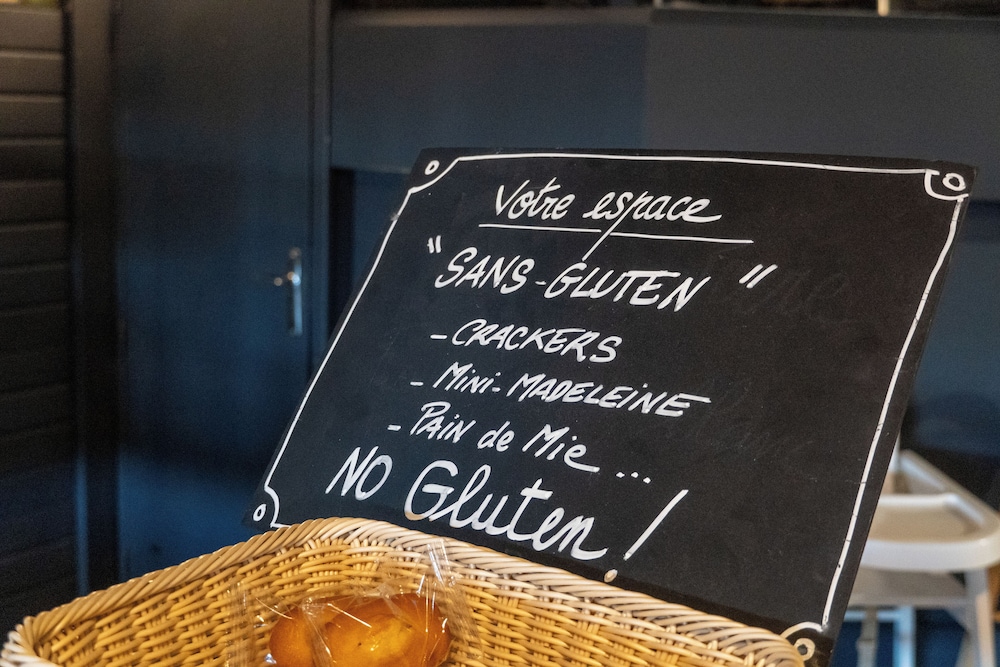 Votre espace
"SANS-GLUTEN"
- CRACKERS
- Mini-MADELEINE
- PAIN de Mie ...
NO Gluten !